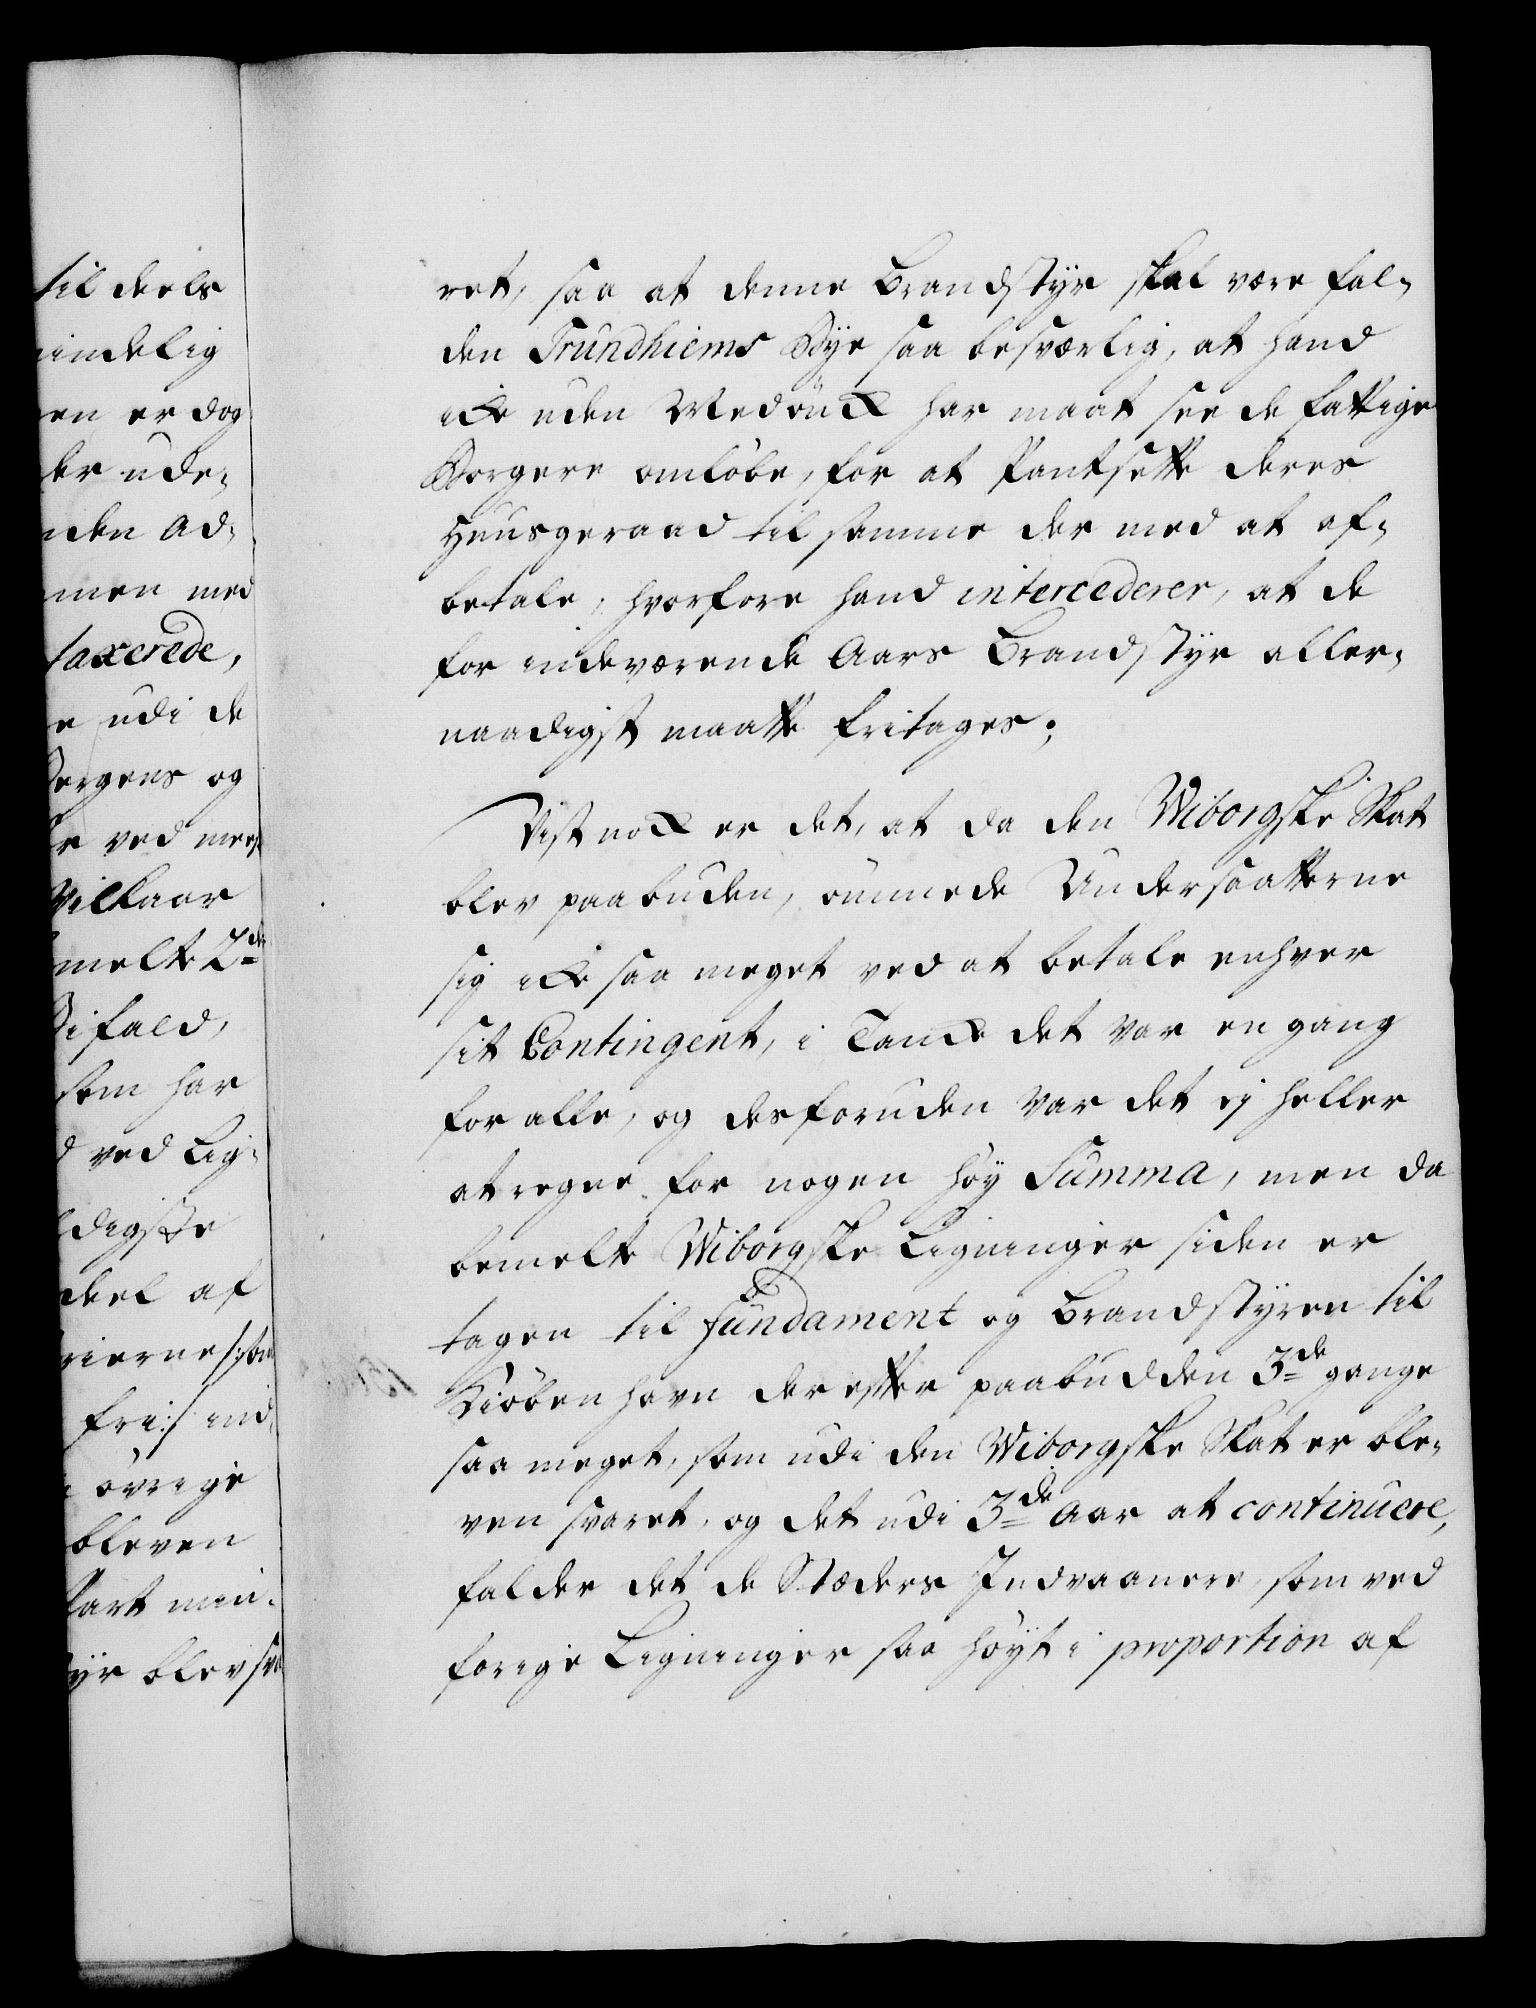 til deels
indelig
en er dog
der ude-
nden Ad-
men med
taxerede,
e udi de
Bergens og
ved meer
Vilkaar
melte 2de
Bifald,
som har
ved Lig-
digste
deel af
rierne /:som
fri:/ ind
øvrige
bleven
part min-
yr blev sva
ret, saa at denne Brandstyr skal være fal-
den Trundhiems Bye saa besværlig, at hand
icke uden Medønck har maat see de fattige
Borgere omløbe, for at Pantsette deres
Huusgeraad til samme der med at af-
betale, hvorfore hand intercederer, at de
for indeværende Aars Brandstyr aller-
naadigst maatte fritages;
Vist nock er det, at da den Wiborgske Skat
blev paabuden, ømmede Undersaatterne
sig icke saa meget ved at betale enhver
sit Contingent, i Tancke det var en gang
for alle, og desforuden var det ej heller
at regne for nogen høy Summa, men da
bemelte Wiborgske Ligninger siden er
tagen til Fundament og Brandstyren til
Kiøbenhavn derefter paabudden 3de gange
saa meget, som udi den Wiborgske Skat er ble-
ven svaret, og det udi 3de Aar at continuere,
falder det de Stæders Indvaanere, som ved
forrige Ligninger saa høyt i proportion af